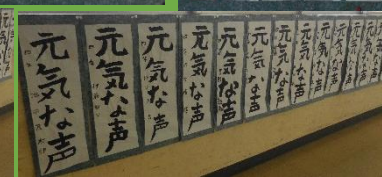 元気な声
元気な声
元気な声
元気な声
元気な声
元気な声
元気な声
元気な声
元気な声
元気な声
元気な声
元気な声
元気な声